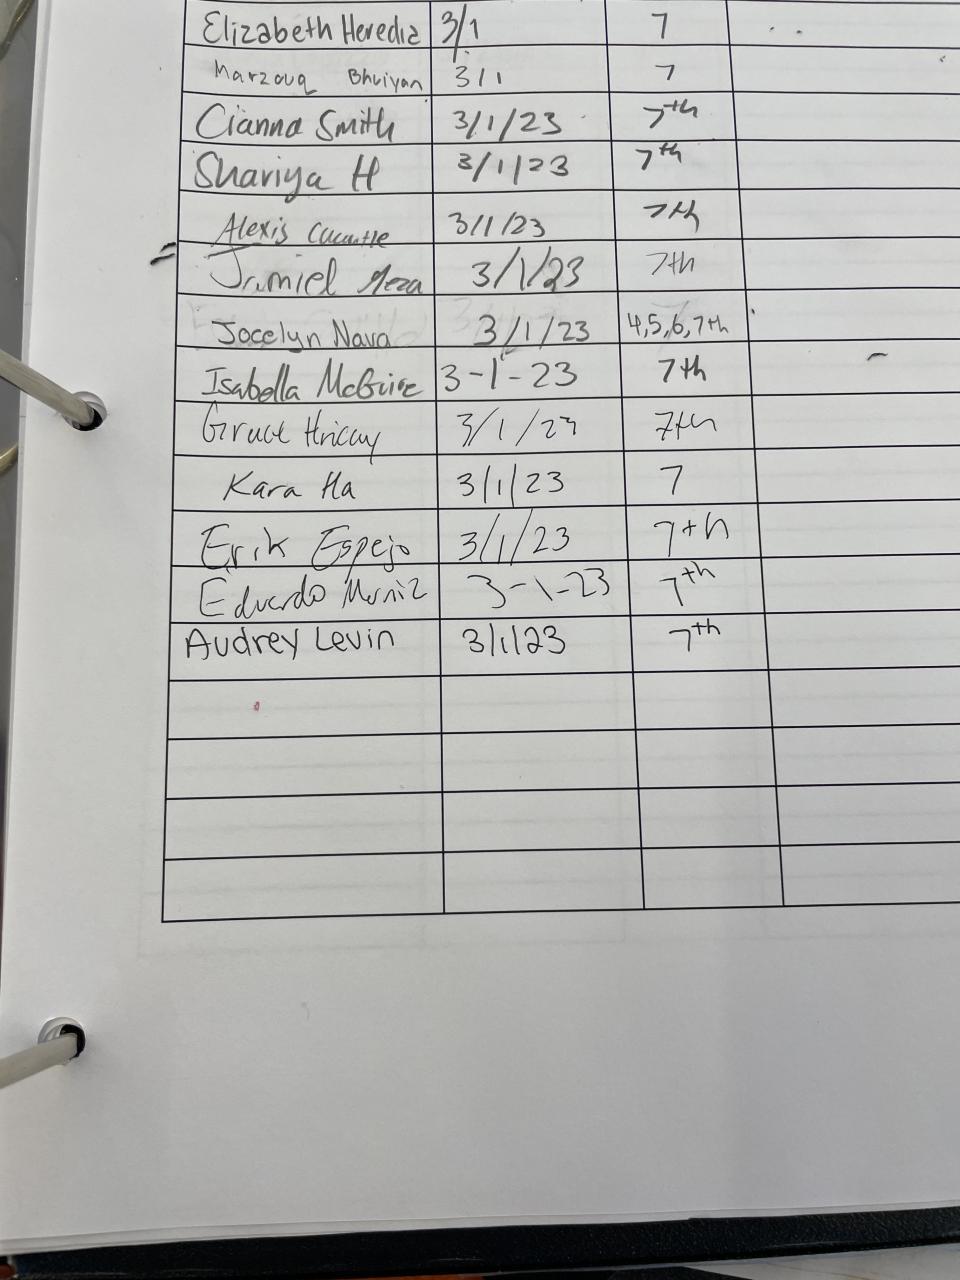 Elizabeth Heredia 3/1 7
Marzouq Bhuiyan 3/1 7
Cianna Smith 3/1/23 7th
Shariya H 3/1/23 7th
Alexis 3/1/23 7th
Jamiel Meza 3/1/23 7th
Jocelyn Nava 3/1/23 4,5,6,7th
Isabella McGuire 3-1-23 7th
3/1/23 7th
Kara Ha 3/1/23 7
Erik Espejo 3/1/23 7th
Eduardo Muniz 3-1-23 7th
Audrey Levin 3/1/23 7th